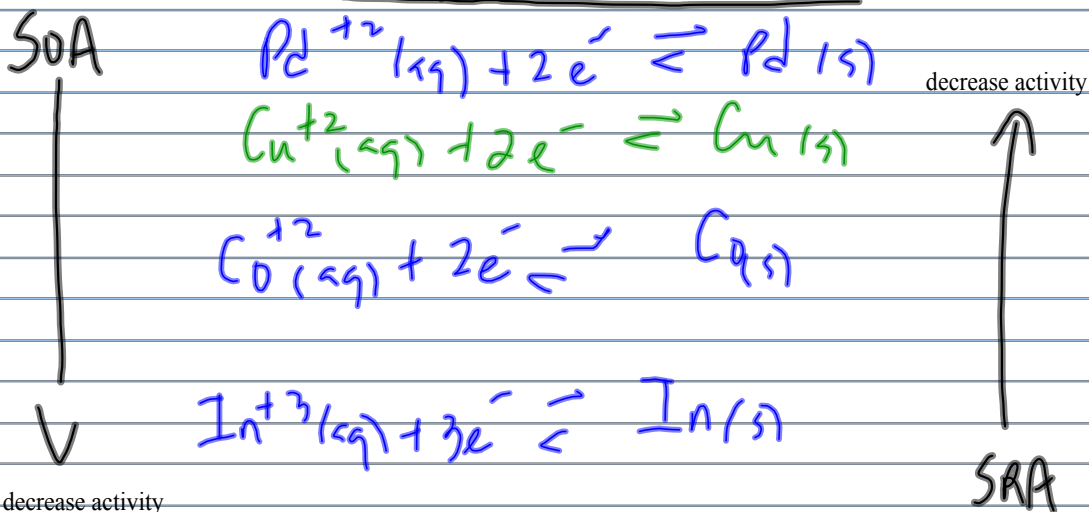 SOA
Pd⁺²(aq) + 2e⁻ ⇌ Pd(s)
decrease activity
Cu⁺²(aq) + 2e⁻ ⇌ Cu(s)
Co⁺²(aq) + 2e⁻ ⇌ Co(s)
In⁺³(aq) + 3e⁻ ⇌ In(s)
SRA
decrease activity